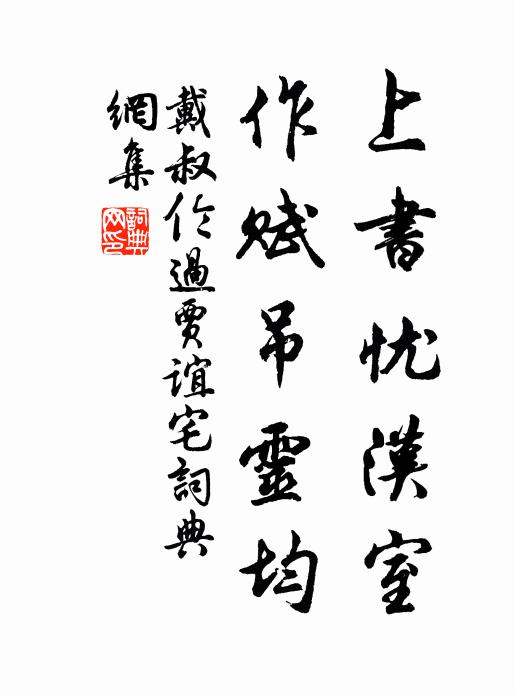 上書忧漢室
作賦吊靈均
戴叔伦過賈誼宅詞典
網集
詞典
网印